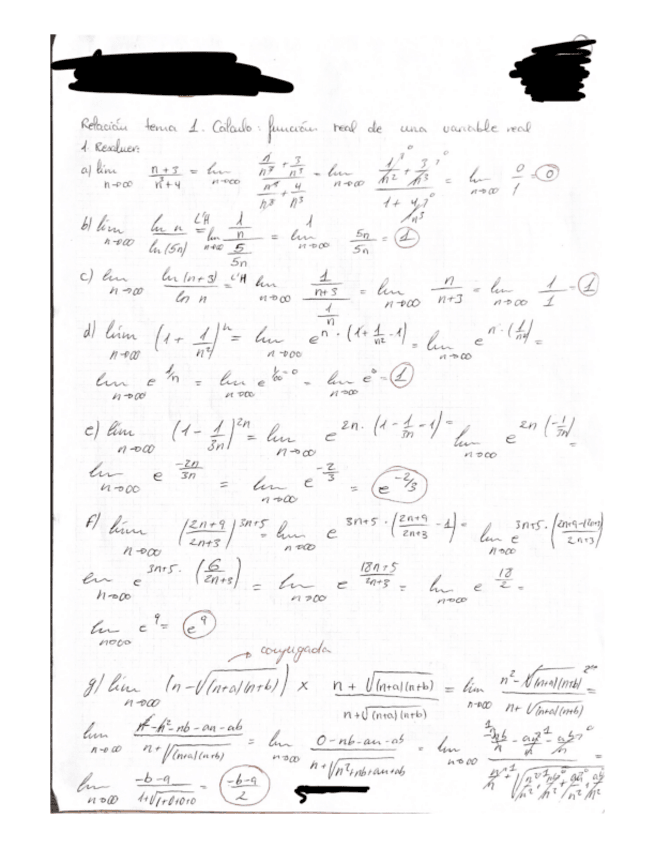 Relación tema 1. Cálculo: función real de una variable real
1. Resolver:
a) lim n→∞ (n+3)/(n³+4) = lim n→∞ (n/n³ + 3/n³)/(n³/n³ + 4/n³) = lim n→∞ (1/n² + 3/n³)/(1 + 4/n³) = lim n→∞ 0/1 = 0
b) lim n→∞ ln n / ln(5n) =L'H lim n→∞ (1/n)/(5/5n) = lim n→∞ 5n/5n = 1
c) lim n→∞ ln(n+3)/ln n =L'H lim n→∞ (1/(n+3))/(1/n) = lim n→∞ n/(n+3) = lim n→∞ 1/1 = 1
d) lim n→∞ (1 + 1/n²)^n = lim n→∞ e^(n·(1+1/n²-1)) = lim n→∞ e^(n·(1/n²)) =
lim n→∞ e^(1/n) = lim n→∞ e^(1/∞=0) = lim n→∞ e^0 = 1
e) lim n→∞ (1 - 1/3n)^(2n) = lim n→∞ e^(2n·(1-1/3n-1)) = lim n→∞ e^(2n(-1/3n)) =
lim n→∞ e^(-2n/3n) = lim n→∞ e^(-2/3) = e^(-2/3)
f) lim n→∞ ((2n+9)/(2n+3))^(3n+5) = lim n→∞ e^(3n+5·((2n+9)/(2n+3) - 1)) = lim n→∞ e^(3n+5·((2n+9-(2n+3))/(2n+3)))
lim n→∞ e^(3n+5·(6/(2n+3))) = lim n→∞ e^((18n+5)/(2n+3)) = lim n→∞ e^(18/2) =
lim n→∞ e^9 = e^9
conjugada
g) lim n→∞ (n-√((n+a)(n+b))) × (n+√((n+a)(n+b)))/(n+√((n+a)(n+b))) = lim n→∞ (n²-√((n+a)(n+b))²)/(n+√((n+a)(n+b))) =
lim n→∞ (n²-n²-nb-an-ab)/(n+√((n+a)(n+b))) = lim n→∞ (0-nb-an-ab)/(n+√(n²+nb+an+ab)) = lim n→∞ (-nb/n - an/n - ab/n)/(n/n + √(n²/n² + nb/n² + an/n² + ab/n²)) =
lim n→∞ (-b-a)/(1+√(1+0+0+0)) = (-b-a)/2